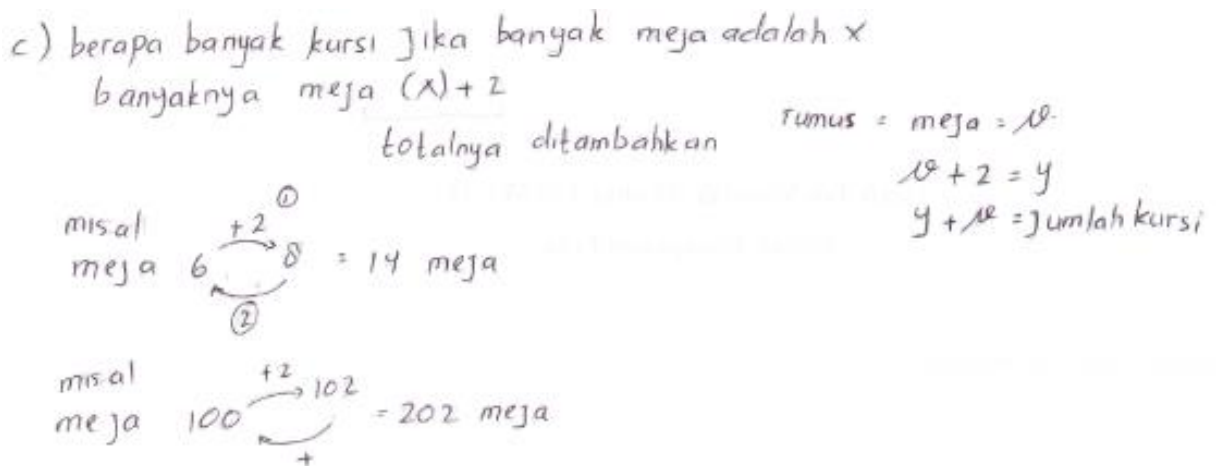 c) berapa banyak kursi Jika banyak meja adalah x
banyaknya meja (x) + 2
totalnya ditambahkan
rumus = meja = v
v + 2 = y
y + v = Jumlah kursi
misal +2 ①
meja 6 8 = 14 meja
②
misal +2
meja 100 102 = 202 meja
+